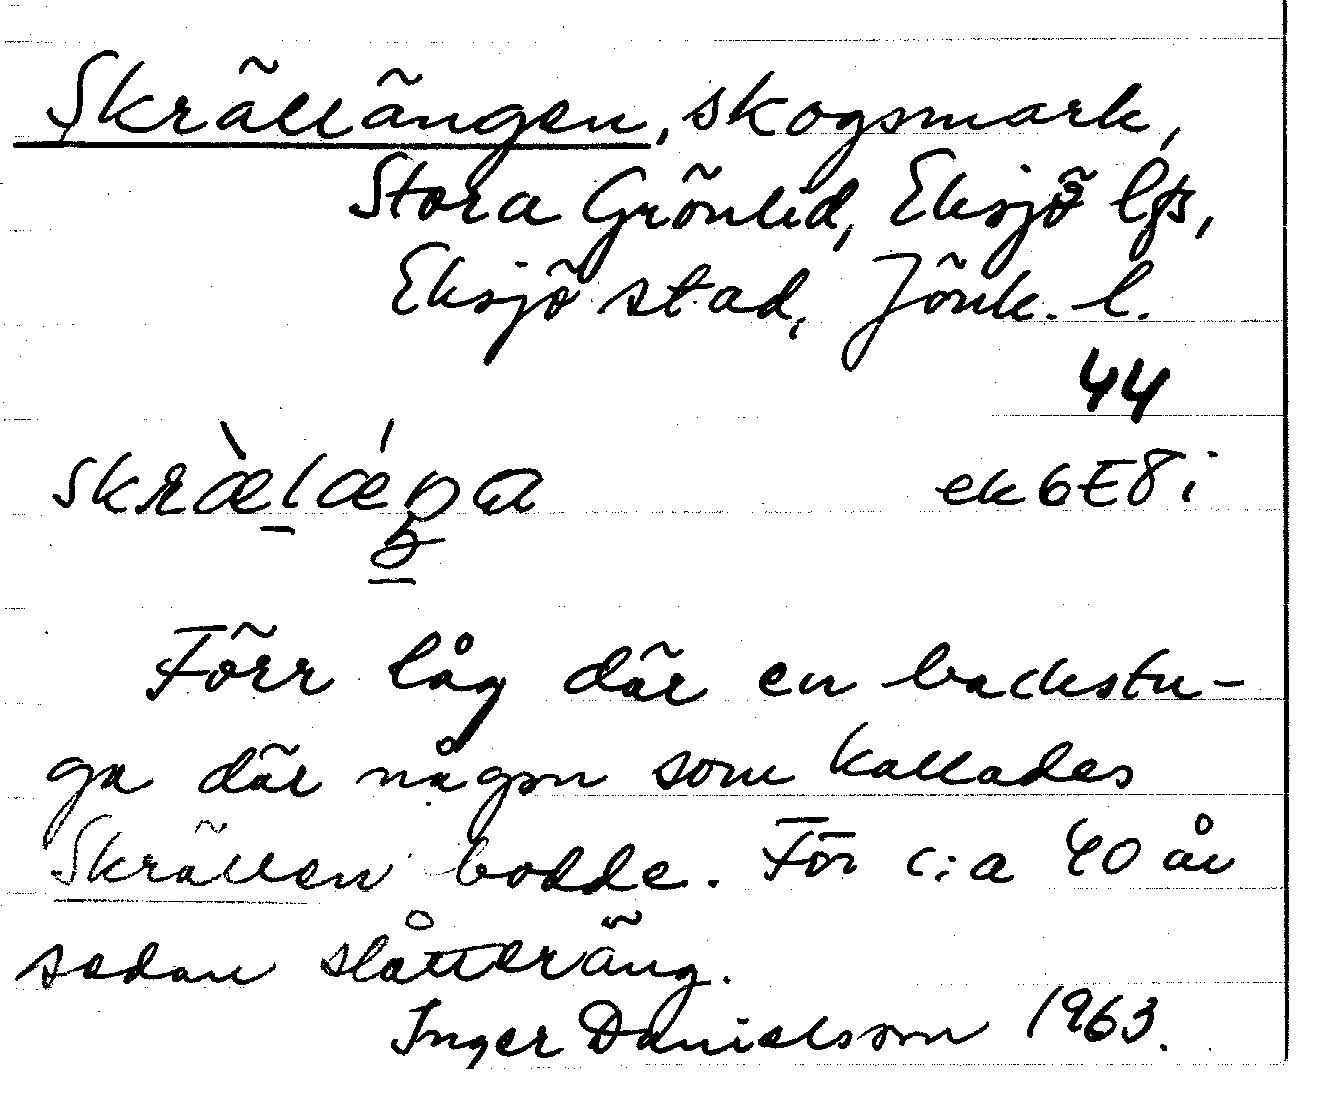 Skrällängen, skogsmark,
Stora Grönlid, Eksjö lfs,
Eksjö stad, Jönk. l.
44
ek6E8i
Förr låg där en backstu-
ga där någon som kallades
Skrällen bodde. För c:a 40 år
sedan slåtteräng.
Inger Danielsson 1963.